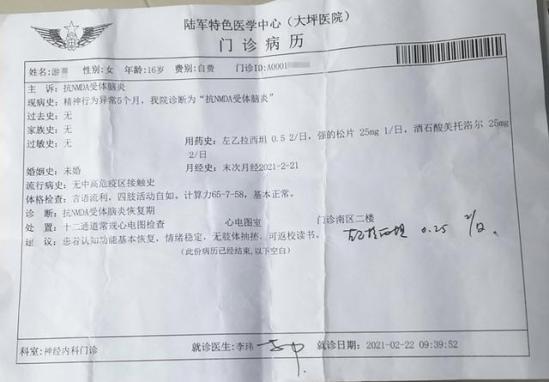 陆军特色医学中心（大坪医院）
门诊病历
姓名: 性别:女 年龄:16岁 费别:自费 门诊ID:A0001
主 诉:抗NMDA受体脑炎
现病史:精神行为异常5个月，我院诊断为“抗NMDA受体脑炎”
过去史:无
家族史:无
过敏史:无 用药史:左乙拉西坦 0.5 2/日，强的松片 25mg 1/日，酒石酸美托洛尔 25mg
2/日
婚姻史:未婚 月经史:末次月经2021-2-21
流行病史:无中高危疫区接触史
体格检查:言语流利，四肢活动自如。计算力65-7-58，基本正常。
诊 断:抗NMDA受体脑炎恢复期
处 置:十二通道常规心电图检查 心电图室 门诊南区二楼
建 议:患者认知功能基本恢复，情绪稳定，无肢体抽搐，可返校读书。
左乙拉西坦 0.25 2/日。
(此份病历已经结束，以下空白)
科室:神经内科门诊 就诊医生:李玮 就诊日期:2021-02-22 09:39:52